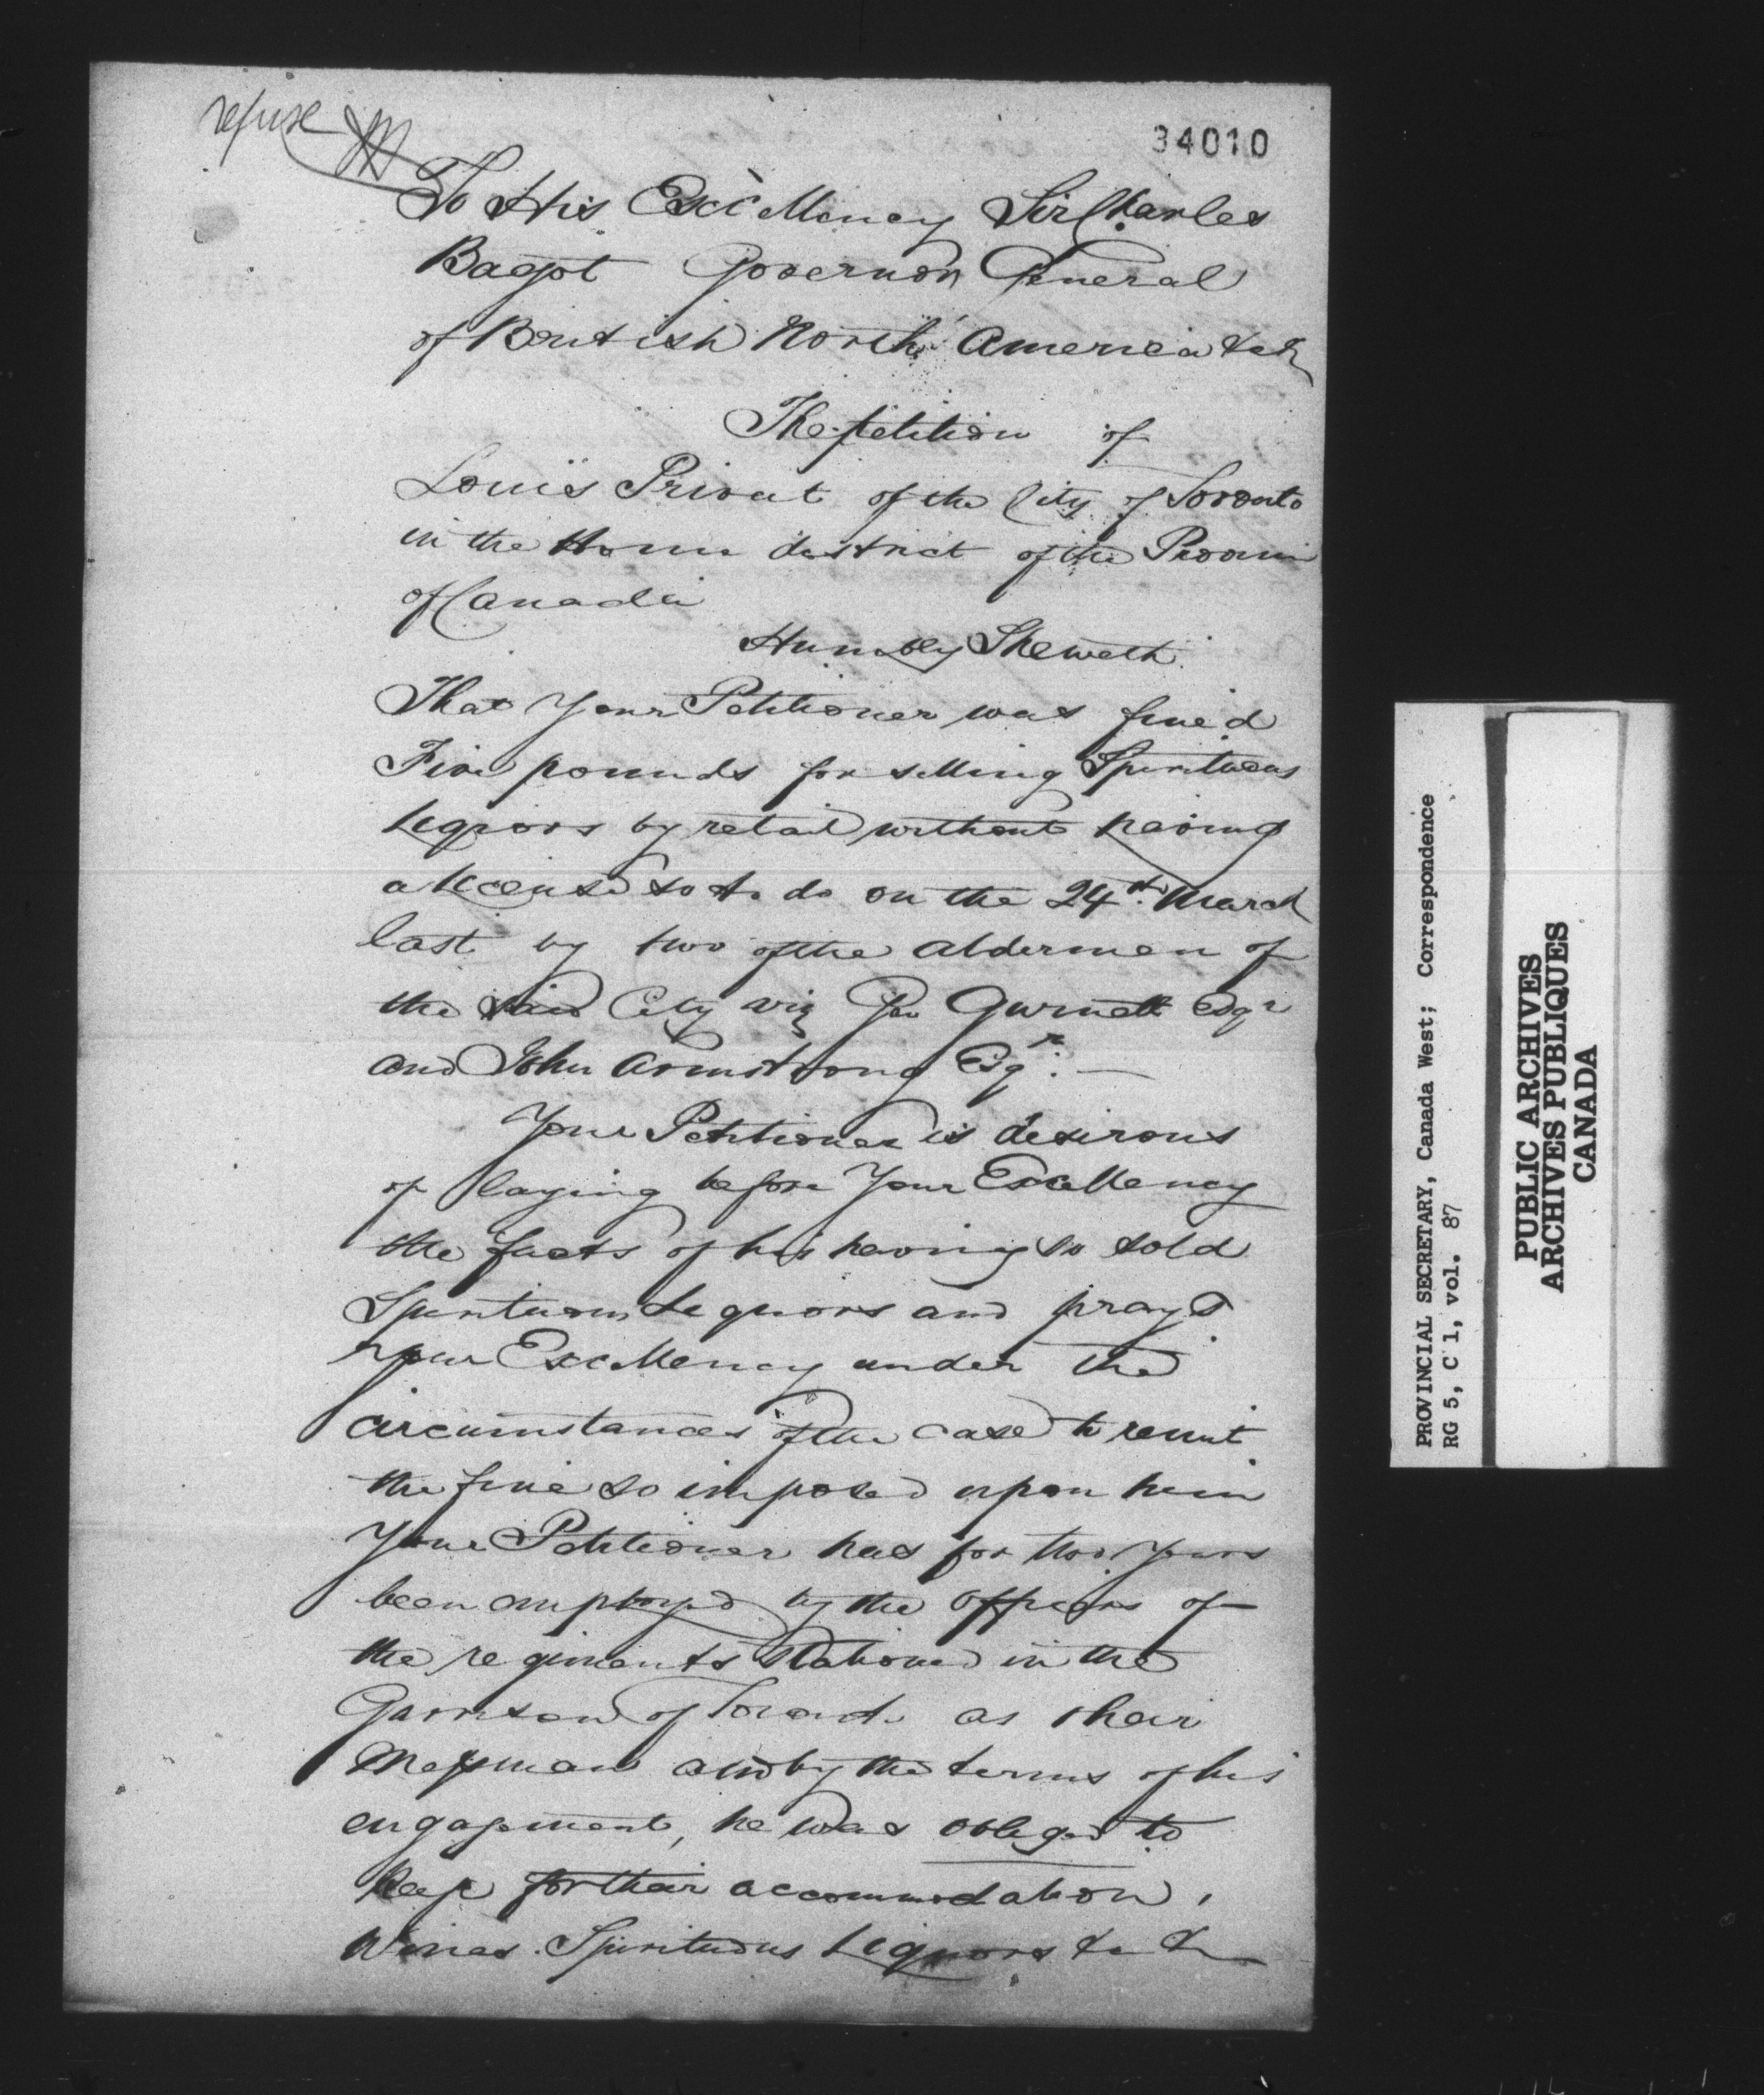 refuse
34010
To His Excellency Sir Charles
Bagot Governor General
of British North America &c &c
The petition of
Louis Privat of the City of Toronto
in the Home district of the Provin
of Canada
Humbly Sheweth.
That Your Petitioner was fined
Five pounds for selling Spirituous
liquors by retail without having
a license so to do on the 24th. March
last by two of the aldermen of
the said City viz Geo Gurnett Esqr
and John Armstrong Esqr. —
Your Petitioner is desirous
of laying before Your Excellency
the facts of his having so sold
Spirituous Liquors and prays
Your Excellency under the
circumstances of the case to remit
the fine so imposed upon him
Your Petitioner has for two years
been employed by the officers of
the regiments stationed in the
Garrison of Toronto as their
Messman and by the terms of his
engagement, he was obliged to
keep for their accommodation,
Wines. Spirituous Liquors &c &c
PROVINCIAL SECRETARY, Canada West; Correspondence
RG 5, C 1, vol. 87
PUBLIC ARCHIVES
ARCHIVES PUBLIQUES
CANADA